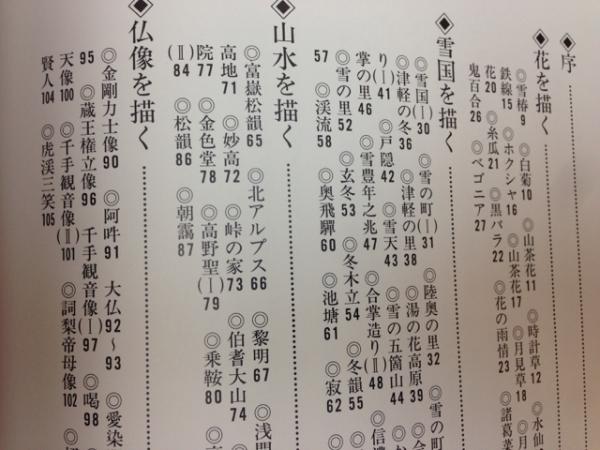 ◆序
◆花を描く
◎雪椿9 ◎白菊10 山茶花11 ◎時計草12 ◎水仙
鉄線15 ホクシャ16 ◎山茶花17 ◎月見草18 ◎月
花20 ◎糸瓜21 ◎黒バラ22 ◎花の雨情23 ◎諸葛菜
鬼百合26 ◎ベゴニア27
◆雪国を描く
◎雪国(Ⅰ)30 ◎雪の町(Ⅰ)31 ◎陸奥の里32 ◎雪の町
◎津軽の冬36 ◎津軽の里38 ◎湯の花高原39 ◎
り(Ⅰ)41 ◎戸隠42 ◎雪天43 ◎雪の五箇山44
掌の里46 ◎雪豊年之兆47 ◎合掌造り(Ⅱ)48 ◎信
◎雪の里52 ◎玄冬53 ◎冬木立54 ◎冬韻55
57 ◎渓流58 ◎奥飛騨60 ◎池塘61 ◎寂62
◆山水を描く
◎富嶽松韻65 ◎北アルプス66 ◎黎明67 ◎浅間
高地71 ◎妙高72 ◎峠の家73 ◎伯耆大山74
院77 ◎金色堂78 ◎高野聖(Ⅰ)79 ◎乗鞍80
(Ⅱ)84 ◎松韻86 ◎朝靄87
◆仏像を描く
◎金剛力士像90 ◎阿吽91 大仏92〜93 ◎愛染
95 ◎蔵王権立像96 千手観音像(Ⅰ)97 ◎喝98
天像100 ◎千手観音像(Ⅱ)101 ◎訶梨帝母像102
賢人104 ◎虎渓三笑105